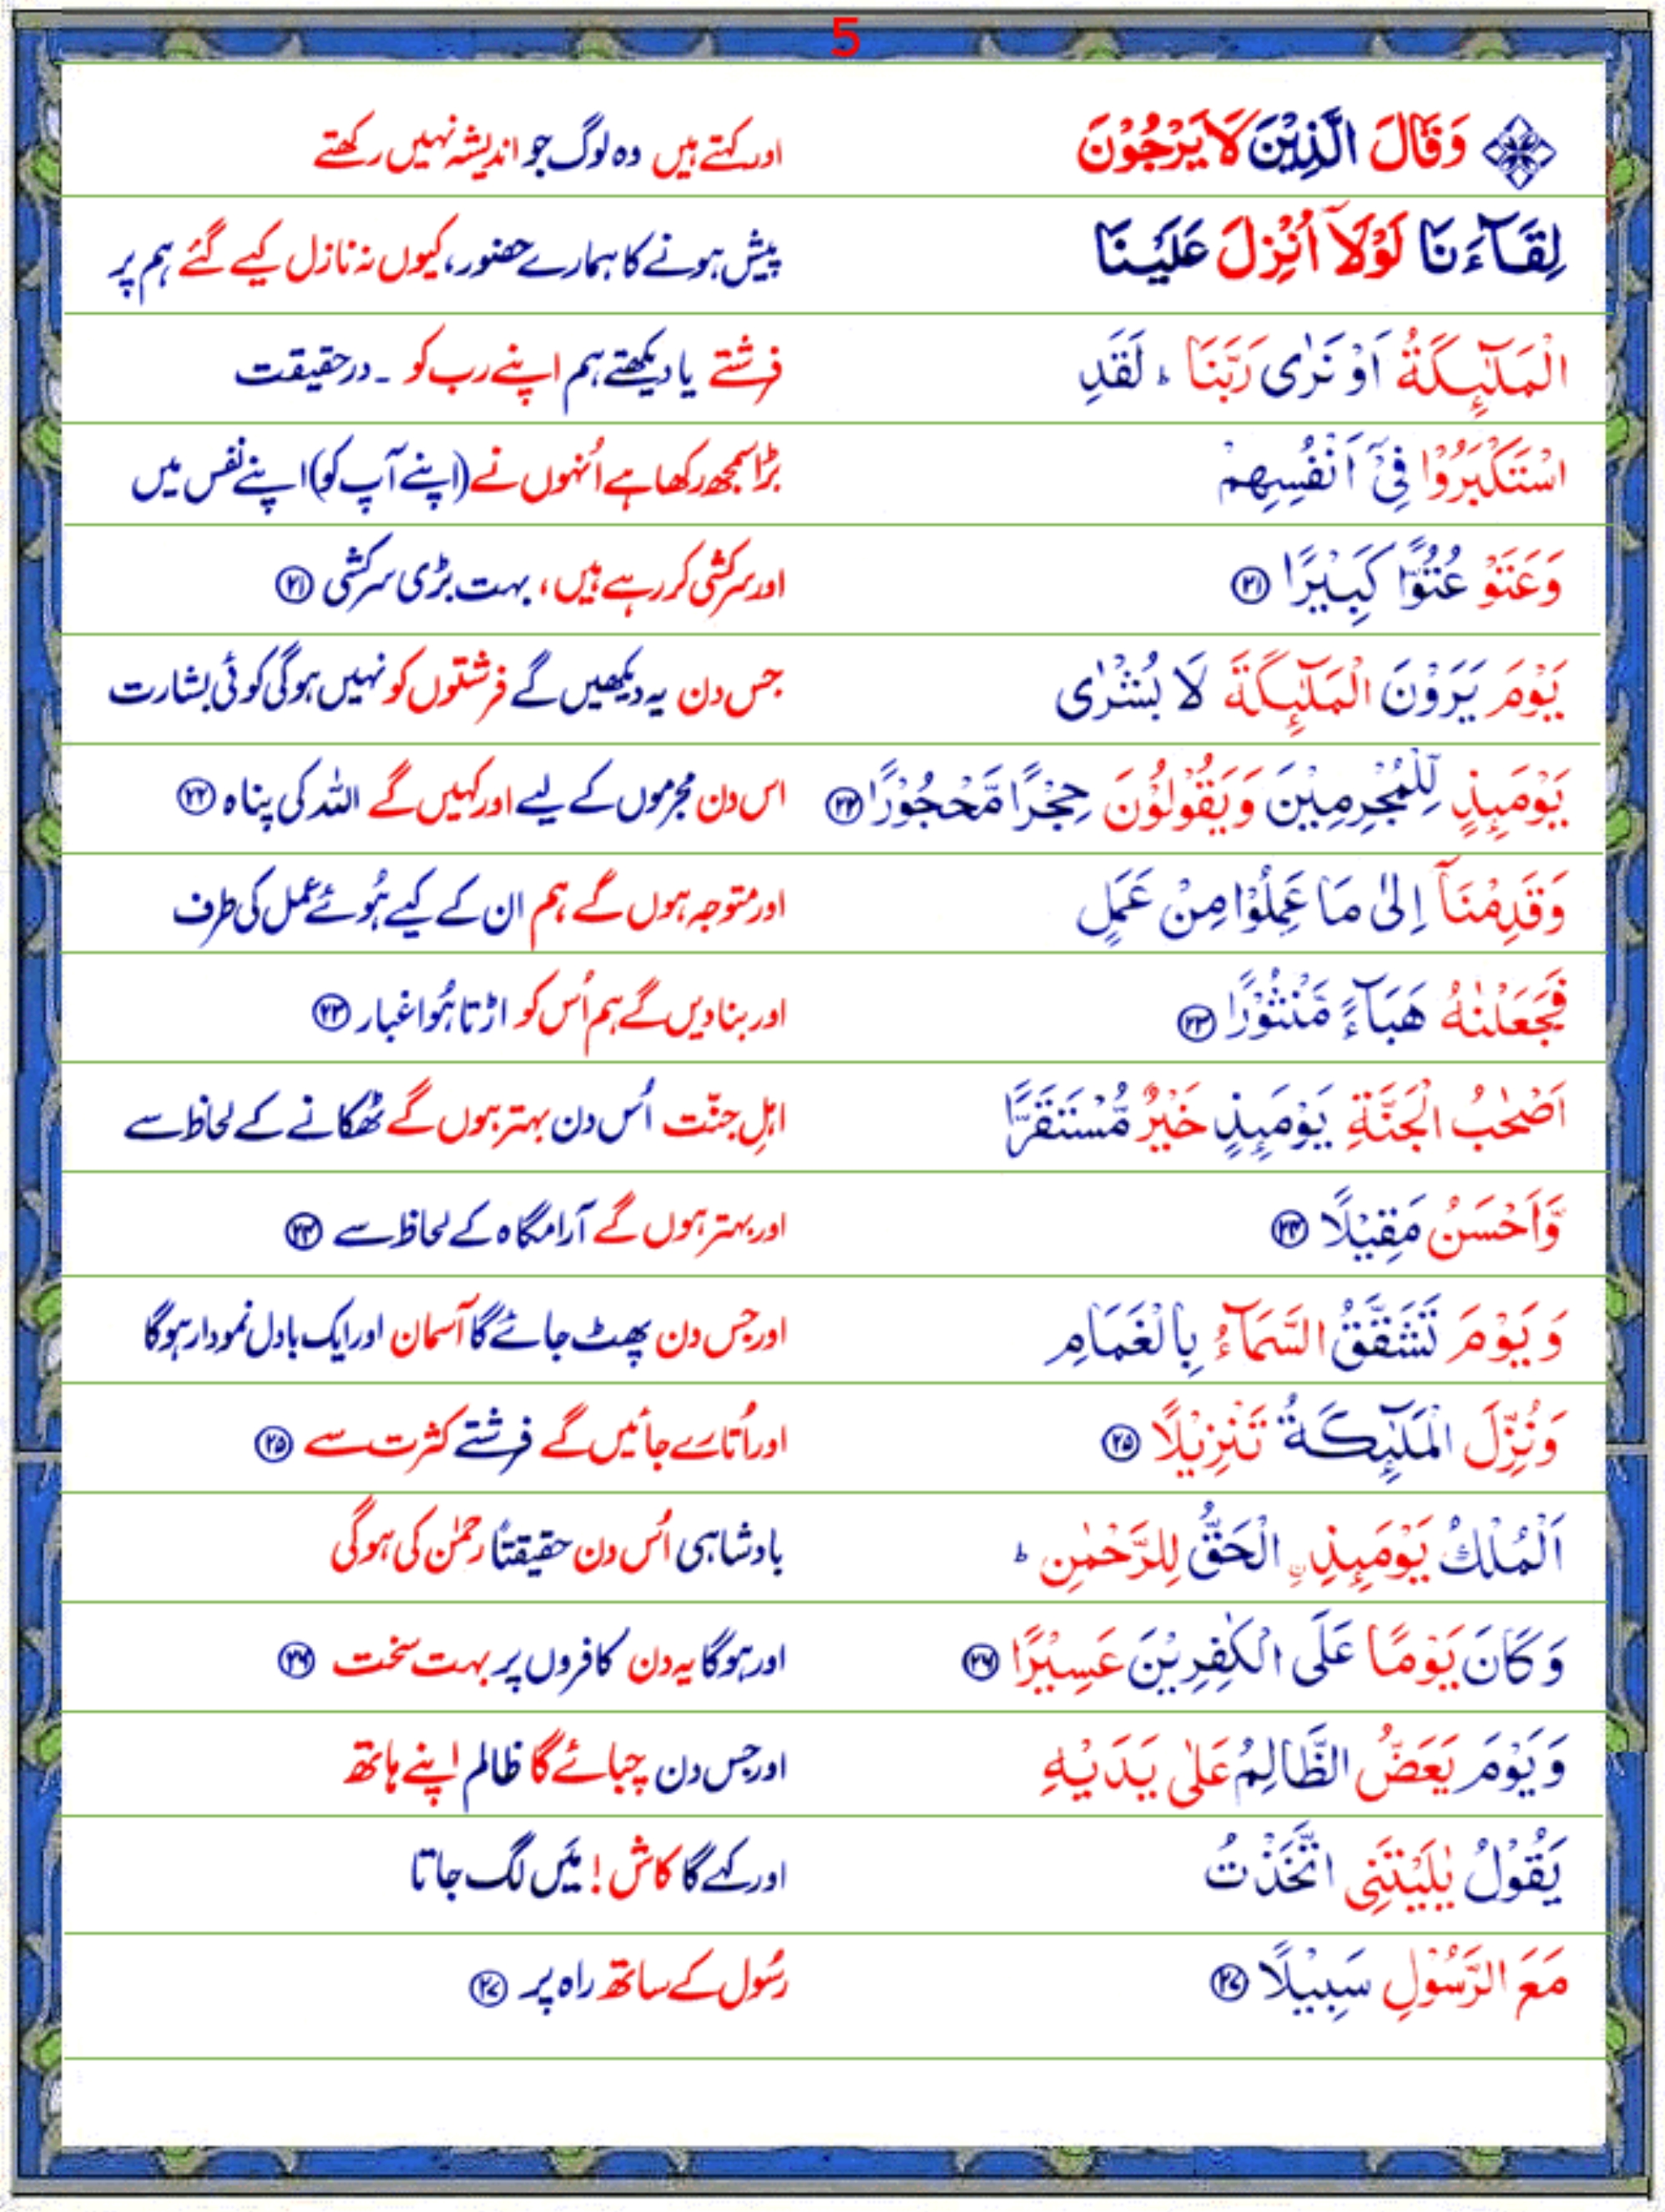 5
وَقَالَ الَّذِيْنَ لَا يَرْجُوْنَ اور کہتے ہیں وہ لوگ جو اندیشہ نہیں رکھتے
لِقَآءَنَا لَوْلَآ اُنْزِلَ عَلَيْنَا پیش ہونے کا ہمارے حضور، کیوں نہ نازل کیے گئے ہم پر
الْمَلٰٓئِكَةُ اَوْ نَرٰى رَبَّنَا ؕ لَقَدِ فرشتے یا دیکھتے ہم اپنے رب کو ۔ درحقیقت
اسْتَكْبَرُوْا فِىْٓ اَنْفُسِهِمْ بڑا سمجھ رکھا ہے اُنہوں نے (اپنے آپ کو) اپنے نفس میں
وَعَتَوْ عُتُوًّا كَبِيْرًا ۲۱ اور سرکشی کر رہے ہیں، بہت بڑی سرکشی ۲۱
يَوْمَ يَرَوْنَ الْمَلٰٓئِكَةَ لَا بُشْرٰى جس دن یہ دیکھیں گے فرشتوں کو نہیں ہوگی کوئی بشارت
يَوْمَئِذٍ لِّلْمُجْرِمِيْنَ وَيَقُوْلُوْنَ حِجْرًا مَّحْجُوْرًا ۲۲ اس دن مجرموں کے لیے اور کہیں گے اللہ کی پناہ ۲۲
وَقَدِمْنَآ اِلٰى مَا عَمِلُوْا مِنْ عَمَلٍ اور متوجہ ہوں گے ہم ان کے کیے ہُوئے عمل کی طرف
فَجَعَلْنٰهُ هَبَآءً مَّنْثُوْرًا ۲۳ اور بنا دیں گے ہم اُس کو اڑتا ہُوا غبار ۲۳
اَصْحٰبُ الْجَنَّةِ يَوْمَئِذٍ خَيْرٌ مُّسْتَقَرًّا اہلِ جنّت اُس دن بہتر ہوں گے ٹھکانے کے لحاظ سے
وَّاَحْسَنُ مَقِيْلًا ۲۴ اور بہتر ہوں گے آرامگاہ کے لحاظ سے ۲۴
وَيَوْمَ تَشَقَّقُ السَّمَآءُ بِالْغَمَامِ اور جس دن پھٹ جائے گا آسمان اور ایک بادل نمودار ہوگا
وَنُزِّلَ الْمَلٰٓئِكَةُ تَنْزِيْلًا ۲۵ اور اُتارے جائیں گے فرشتے کثرت سے ۲۵
اَلْمُلْكُ يَوْمَئِذِ ۨ الْحَقُّ لِلرَّحْمٰنِ ؕ بادشاہی اُس دن حقیقتاً رحمٰن کی ہوگی
وَكَانَ يَوْمًا عَلَى الْكٰفِرِيْنَ عَسِيْرًا ۲۶ اور ہوگا یہ دن کافروں پر بہت سخت ۲۶
وَيَوْمَ يَعَضُّ الظَّالِمُ عَلٰى يَدَيْهِ اور جس دن چبائے گا ظالم اپنے ہاتھ
يَقُوْلُ يٰلَيْتَنِى اتَّخَذْتُ اور کہے گا کاش! میَں لگ جاتا
مَعَ الرَّسُوْلِ سَبِيْلًا ۲۷ رسُول کے ساتھ راہ پر ۲۷